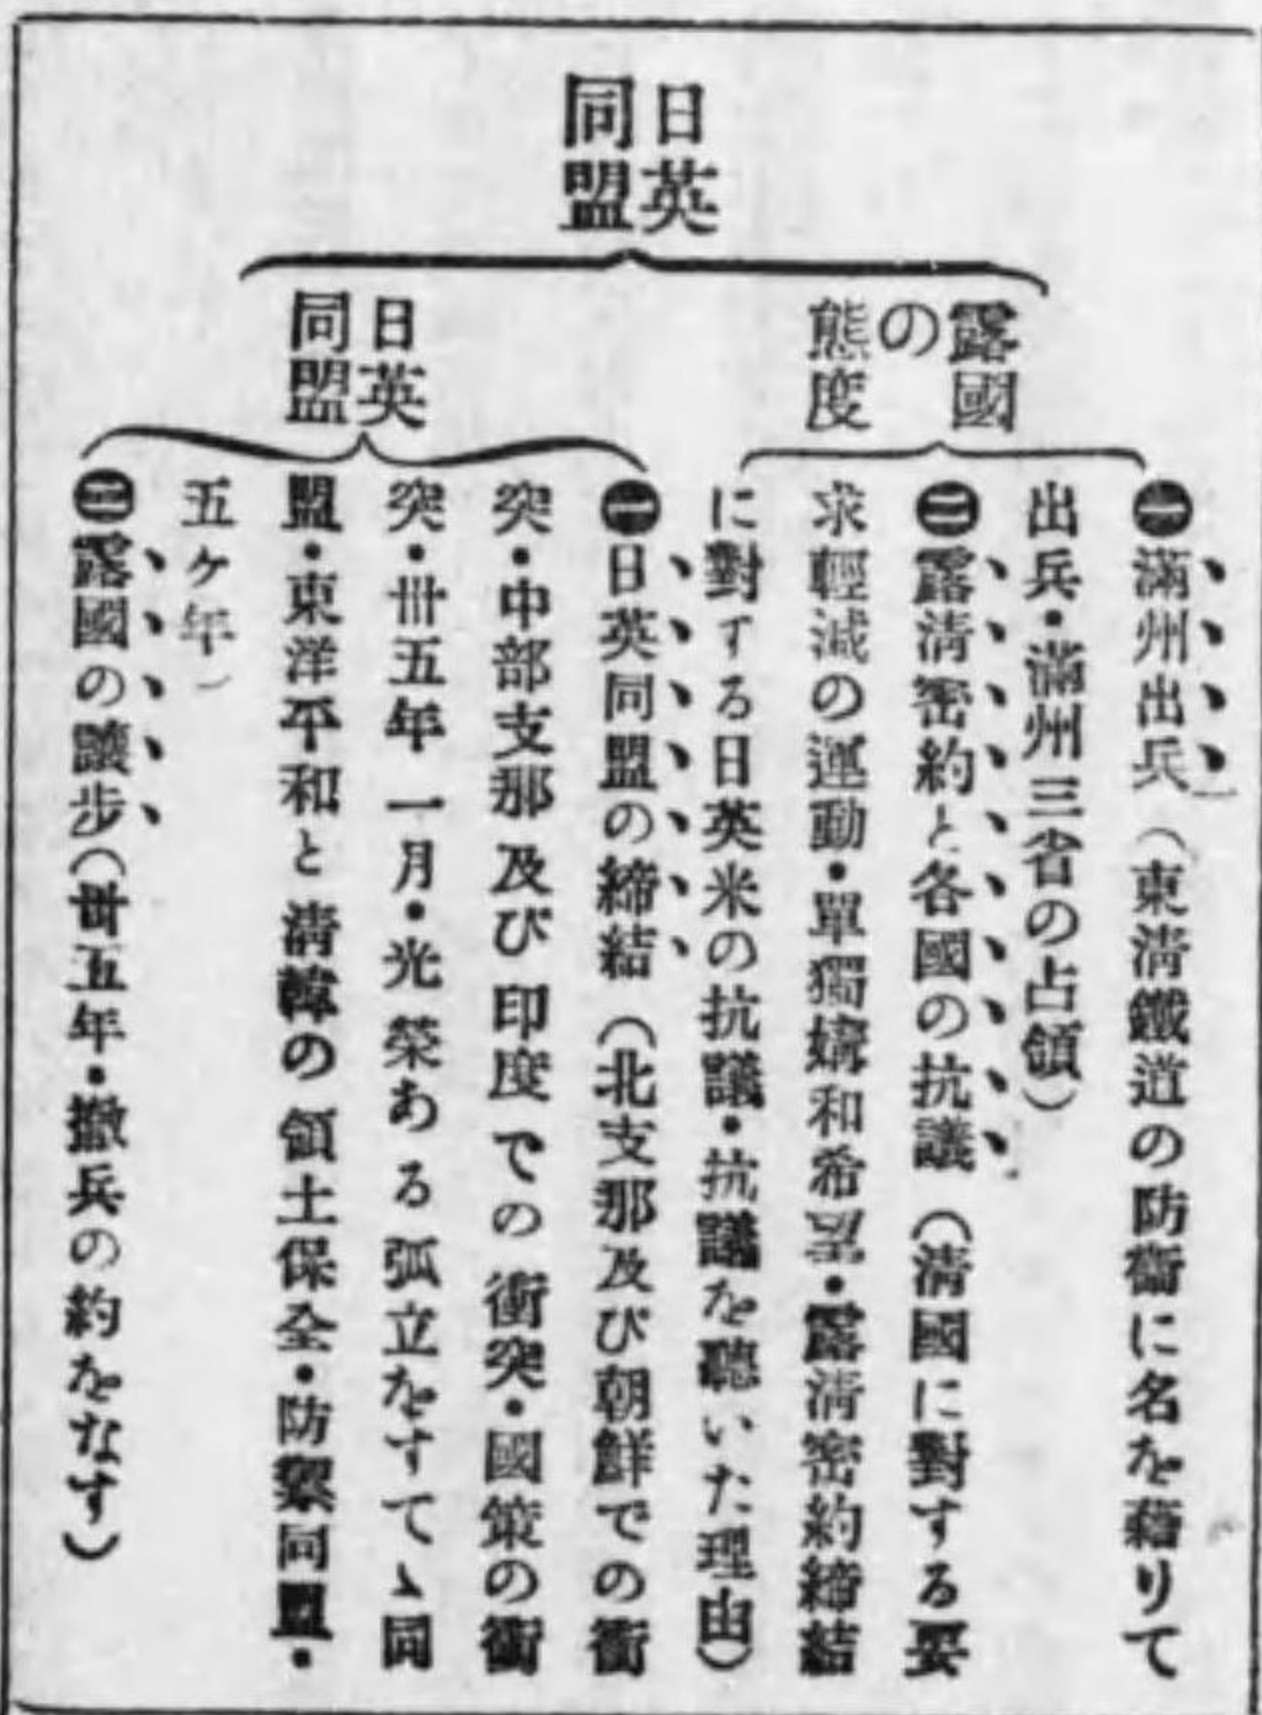 日英
同盟
露國
の
態度
㊀滿州出兵（東淸鐵道の防衞に名を藉りて
出兵・滿州三省の占領）
㊁露淸密約と各國の抗議（淸國に對する要
求輕減の運動・單獨媾和希望・露淸密約締結
に對する日英米の抗議・抗議を聽いた理由）
日英
同盟
㊀日英同盟の締結（北支那及び朝鮮での衝
突・中部支那及び印度での衝突・國策の衝
突・卅五年一月・光榮ある弧立をすてゝ同
盟・東洋平和と淸韓の領土保全・防禦同盟・
五ヶ年）
㊁露國の讓步（卅五年・撤兵の約をなす）